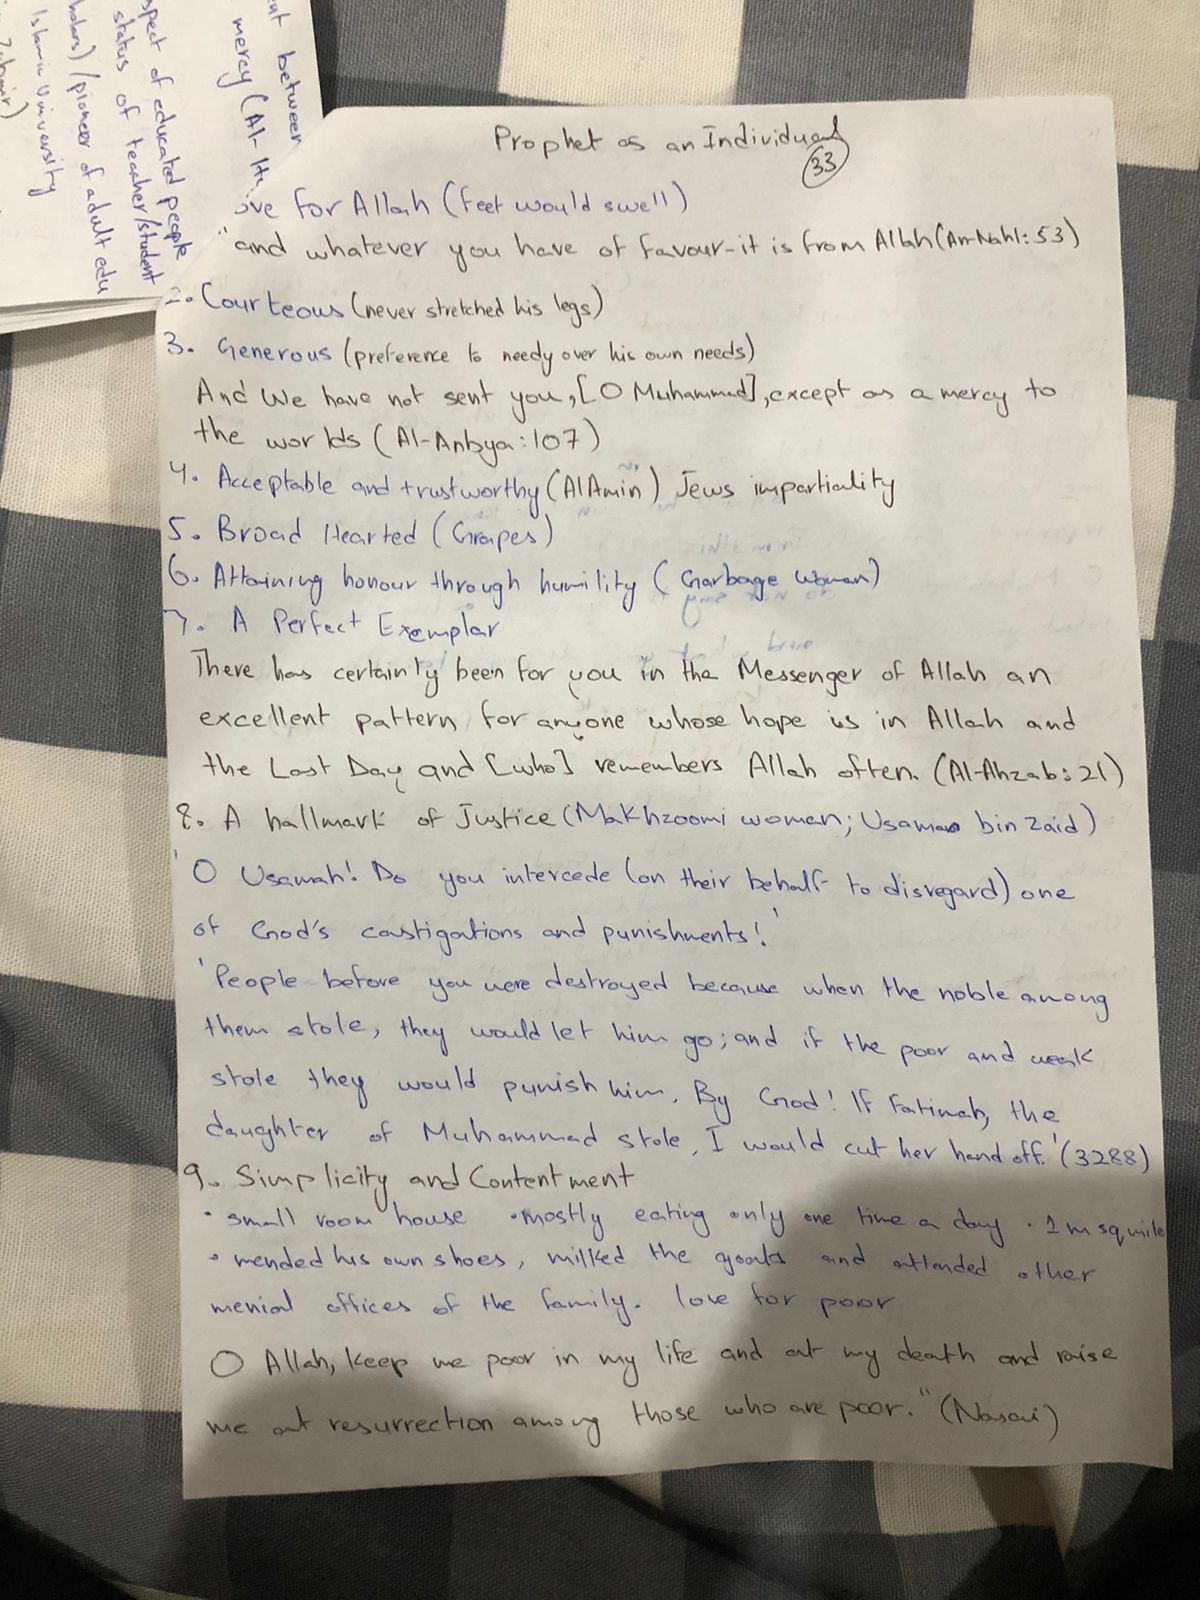 ut between
mercy (Al-
spect of educated people
status of teacher/student
/pioneer of adult edu
Islamic University
Prophet as an Individual
33
ove for Allah (feet would swell)
"and whatever you have of favour-it is from Allah (An-Nahl:53)
2. Courteous (never stretched his legs)
3. Generous (preference to needy over his own needs)
And We have not sent you, [O Muhammad], except as a mercy to
the worlds (Al-Anbya:107)
4. Acceptable and trustworthy (AlAmin) Jews impartiality
5. Broad Hearted (Grapes)
6. Attaining honour through humility (Garbage Woman)
7. A Perfect Exemplar
There has certainly been for you in the Messenger of Allah an
excellent pattern for anyone whose hope is in Allah and
the Last Day and [who] remembers Allah often. (Al-Ahzab:21)
8. A hallmark of Justice (Makhzoomi women; Usama bin Zaid)
'O Usamah! Do you intercede (on their behalf to disregard) one
of God's castigations and punishments!'
'People before you were destroyed because when the noble among
them stole, they would let him go; and if the poor and weak
stole they would punish him. By God! If Fatimah, the
daughter of Muhammad stole, I would cut her hand off.' (3288)
9. Simplicity and Contentment
• small room house • mostly eating only one time a day • 1 m sq mile
• mended his own shoes, milked the goats and attended other
menial offices of the family. love for poor
O Allah, keep me poor in my life and at my death and raise
me at resurrection among those who are poor." (Nasai)